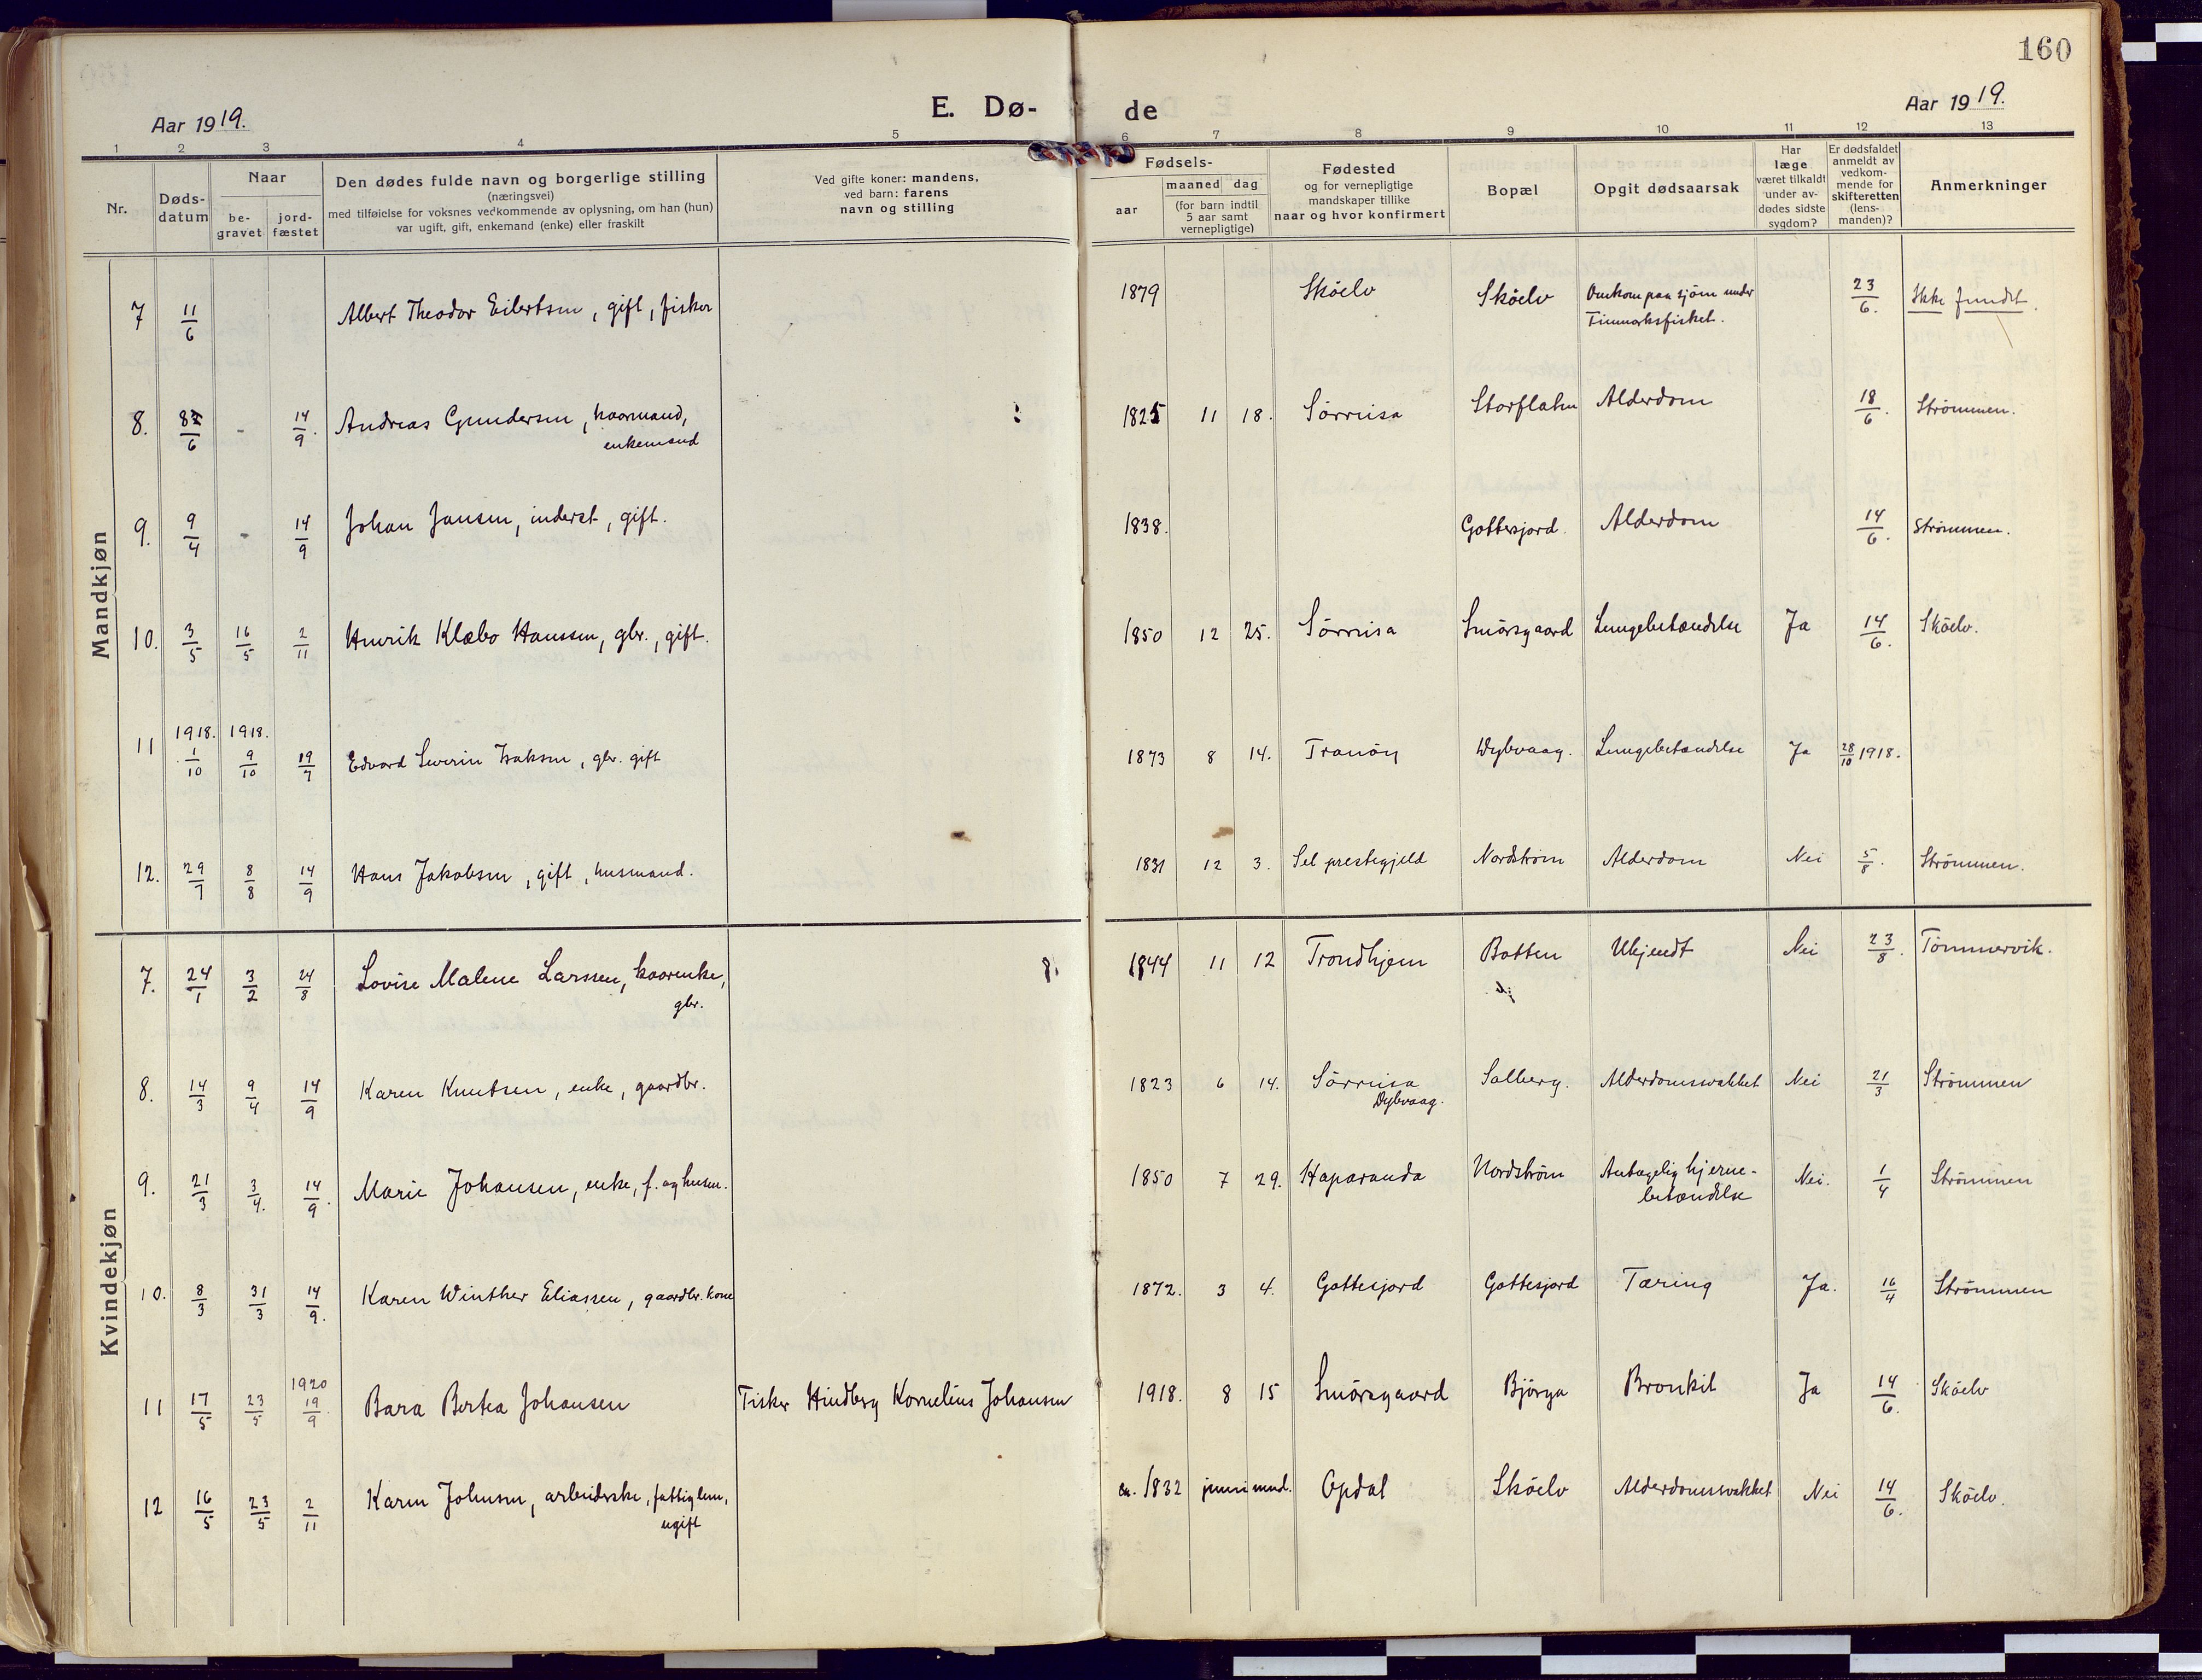 160
Aar 1919.
E. Dø-
de
Aar 1919.
1 2 3 4 5 6 7 8 9 10 11 12 13
Nr.
Døds-
datum
Naar
be-
gravet
jord-
fæstet
Den dødes fulde navn og borgerlige stilling
(næringsvei)
med tilføielse for voksnes vedkommende av oplysning, om han (hun)
var ugift, gift, enkemand (enke) eller fraskilt
Ved gifte koner: mandens,
ved barn: farens
navn og stilling
Fødsels-
aar
maaned dag
(for barn indtil
5 aar samt
vernepligtige)
Fødested
og for vernepligtige
mandskaper tillike
naar og hvor konfirmert
Bopæl
Opgit dødsaarsak
Har
læge
været tilkaldt
under av-
dødes sidste
sygdom?
Er dødsfaldet
anmeldt av
vedkom-
mende for
skifteretten
(lens-
manden)?
Anmerkninger
Mandkjøn
7 11/6 Albert Theodor Eilertsen, gift, fisker 1879 Sköelv Sköelv Omkom paa sjöen under 23/6. Ikke fundet.
Finmarksfisket.
8. /6 - 14/9. Andreas Gundersen, kaarmand, 1825 11 18. Sörreisa Storflaten Alderdom 18/6. Strömmen.
enkemand
9. 9/4 - 14/9 Johan Jansen, inderst, gift. 1838. Gottesjord. Alderdom 14/6. Strömmen.
10. 3/5 16/5 2/11 Henrik Klæbo Hanssen, gbr., gift. 1850 12 25. Sörreisa Smörsgaard Lungebetændelse Ja 14/6. Sköelv.
1918. 1918.
11 1/10 9/10 19/7 Edvard Severin Isaksen, gbr. gift 1873 8 14. Tranöy Dybvaag. Lungebetændelse Ja 28/10 1918.
12. 29/7 8/8 14/9 Hans Jakobsen, gift, husmand. 1831 12 3. Sel prestegjeld Nordström Alderdom Nei 5/8. Strömmen.
Kvindekjøn
7. 24/1 3/2 24/8 Lovise Malene Larssen, kaarenke, 1844 11 12 Trondhjem Botten Ukjendt Nei 23/8. Tömmervik.
gbr.
8. 14/3 9/4 14/9 Karen Knutsen, enke, gaardbr. 1823 6 14. Sörreisa Solberg. Alderdomssvakhet Nei 21/3 Strömmen
Dybvaag.
9. 21/3 3/4. 14/9. Marie Johansen, enke, f. og husm. 1850 7 29. Haparanda Nordström Antagelig hjerne- Nei. 1/4 Strömmen
betændelse
10. 8/3 31/3 14/9. Karen Winther Eliassen, gaardbr. kone 1872. 3 4. Gottesjord Gottesjord Tæring Ja. 16/4 Strömmen
1920
11 17/5 23/5 19/9. Bara Bertea Johansen Fisker Hindberg Kornelius Johansen 1918. 8 15 Smörsgaard Björga Bronkit Ja 14/6. Sköelv
12 16/5 23/5 2/11 Karen Johnsen, arbeiderske, fattiglem, ca. 1832 juni mnd. Opdal Sköelv Alderdomssvakhet Nei 14/6. Sköelv.
ugift